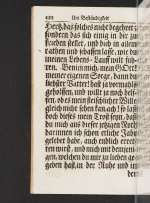 Um Beständigkeit
Hertz, das solches nicht begehret,
sondern das sich einig in dir zu-
frieden stellet, und dich in allem
rathen und schaffen lasse, wie du
meinen Lebens-Lauff wilt
den. Benim mich, mein GOtt
meiner eigenen Sorge, dann du
liebster Vatter! hast ja vormals
geholffen, und wilst ja noch helf-
fen, ob es mein fleischlicher Wille
gleich nicht sehen kan, ach! so laß
doch dieses mein Trost seyn, daß
du mich aus dieser jetzigen Noth
darinnen ich schon etliche Jahr
gelebet habe, auch endlich errett-
ten wirst, und mich und denjeni-
gen, welchen du mir zu lieben ge-
geben hast, in der Ruhe und im
dem